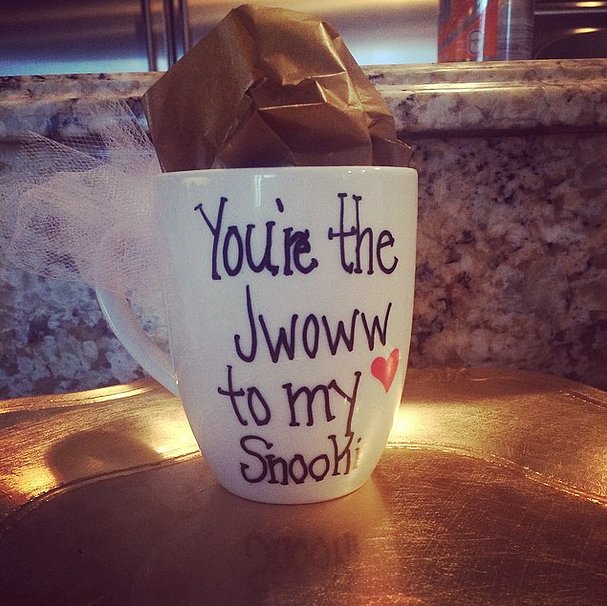 You're the
Jwoww
to my
Snooki